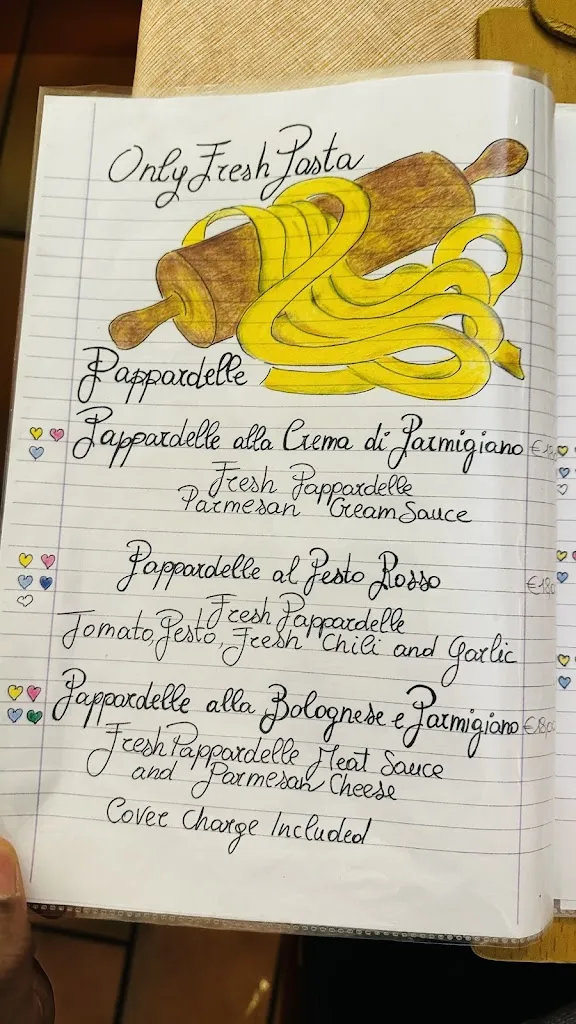 Only Fresh Pasta
Pappardelle
Pappardelle alla Crema di Parmigiano
Fresh Pappardelle
Parmesan Cream Sauce
Pappardelle al Pesto Rosso
Fresh Pappardelle
Tomato, Pesto, Fresh Chili and Garlic
Pappardelle alla Bolognese e Parmigiano
Fresh Pappardelle Meat Sauce
and Parmesan Cheese
Cover Charge Included